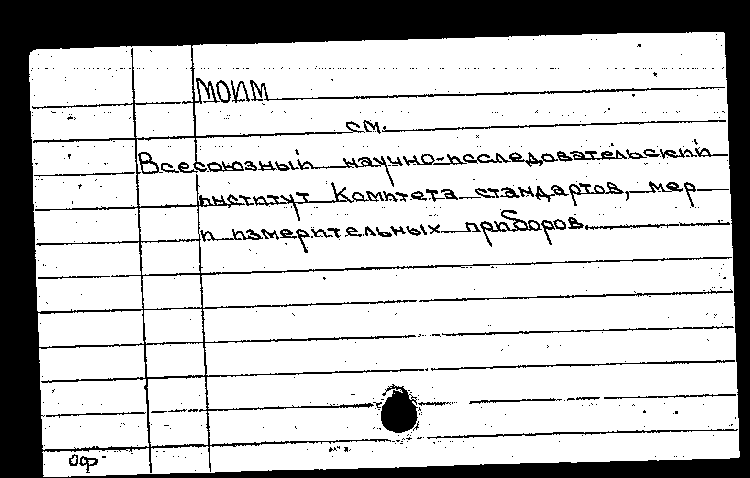 МОИМ
см.
Всесоюзный научно-исследовательский
институт Комитета стандартов, мер
и измерительных приборов.
оф